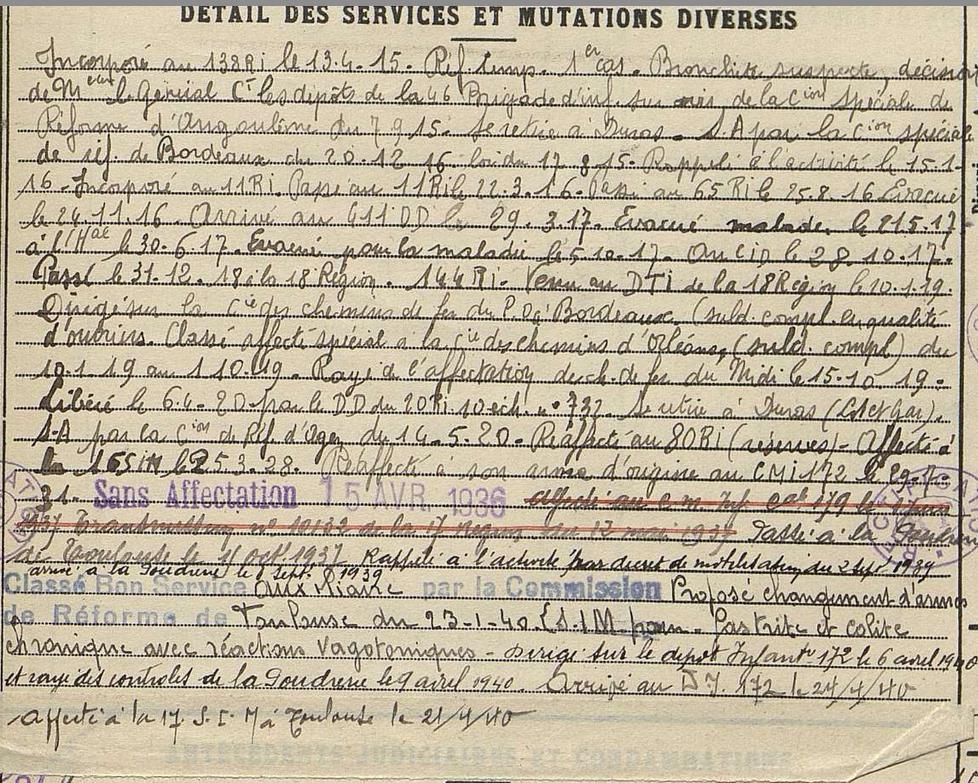 DÉTAIL DES SERVICES ET MUTATIONS DIVERSES
Incorporé au 138RI le 13.4.15. Réf. temp. 1er cas. Bronchite suspecte, décision
de Mr le Général Ct les dépôts de la 46 Brigade d'inf. sur avis de la Cion spéciale de
Réforme d'Angoulême du 7 9 15. Se retire à Duras. S.A par la Cion spéciale
de réf. de Bordeaux du 20.12 16 loi du 17 8 15. Rappelé à l'activité le 15.1.
16. Incorporé au 11RI. Passé au 11RI le 22.3.16. Passé au 65 RI le 25.8.16 Evacué
le 24.11.16. Arrivé au 411 DD le 29.3.17. Evacué malade le 215.17
à l'Hal le 30.6.17. Evacué pour la maladie le 5.10.17. Au CID le 28.10.17.
Passé le 31.12.18 à la 18 Région. 144RI. Venu au DTI de la 18 Région le 10.1.19.
Dirigé sur la Cie des chemins de fer du P.O. à Bordeaux (suld. compl. en qualité
d'ouvriers. Classé affecté spécial à la Cie des chemins d'Orléans (suld. compl) du
10.1 19 au 1 10.19. Rayé de l'affectation des ch. de fer du Midi le 15.10 19.
Libéré le 6.4.20 par le DD du 20RI 10 éch. n° 732. Se retire à Duras (Lot et Gar).
S.A par la Cion de Réf. d'Agen du 14.5.20. Réaffecté au 80RI (réserves). Affecté à
la 16SIM le 25.3.28. Réaffecté à son arme d'origine au CMI 172 le
31. Sans Affectation 15 AVR. 1936 affecté au C.M. Inf. 179 le
1937 n° 10132 de la 17 Région du 12 mai 1937 Passé à la Poudrerie
de Toulouse le 1 oct 1937 Rappelé à l'activité par décret de mobilisation du 2 sept 1939
arrivé à la Poudrerie le 8 sept. 1939
Classé Bon Service auxiliaire par la Commission Proposé changement d'armes
de Réforme de Toulouse du 23-1-40 (S.I.M pour Gastrite et colite
chronique avec réactions Vagotoniques - Dirigé sur le dépôt Infantie 172 le 6 avril 1940
et rayé des contrôles de la Poudrerie le 9 avril 1940. Arrivé au D.I. 172 le 24/4/40
Affecté à la 17. S.I.M à Toulouse le 21/4/40
ANTÉCÉDENTS JUDICIAIRES ET CONDAMNATIONS